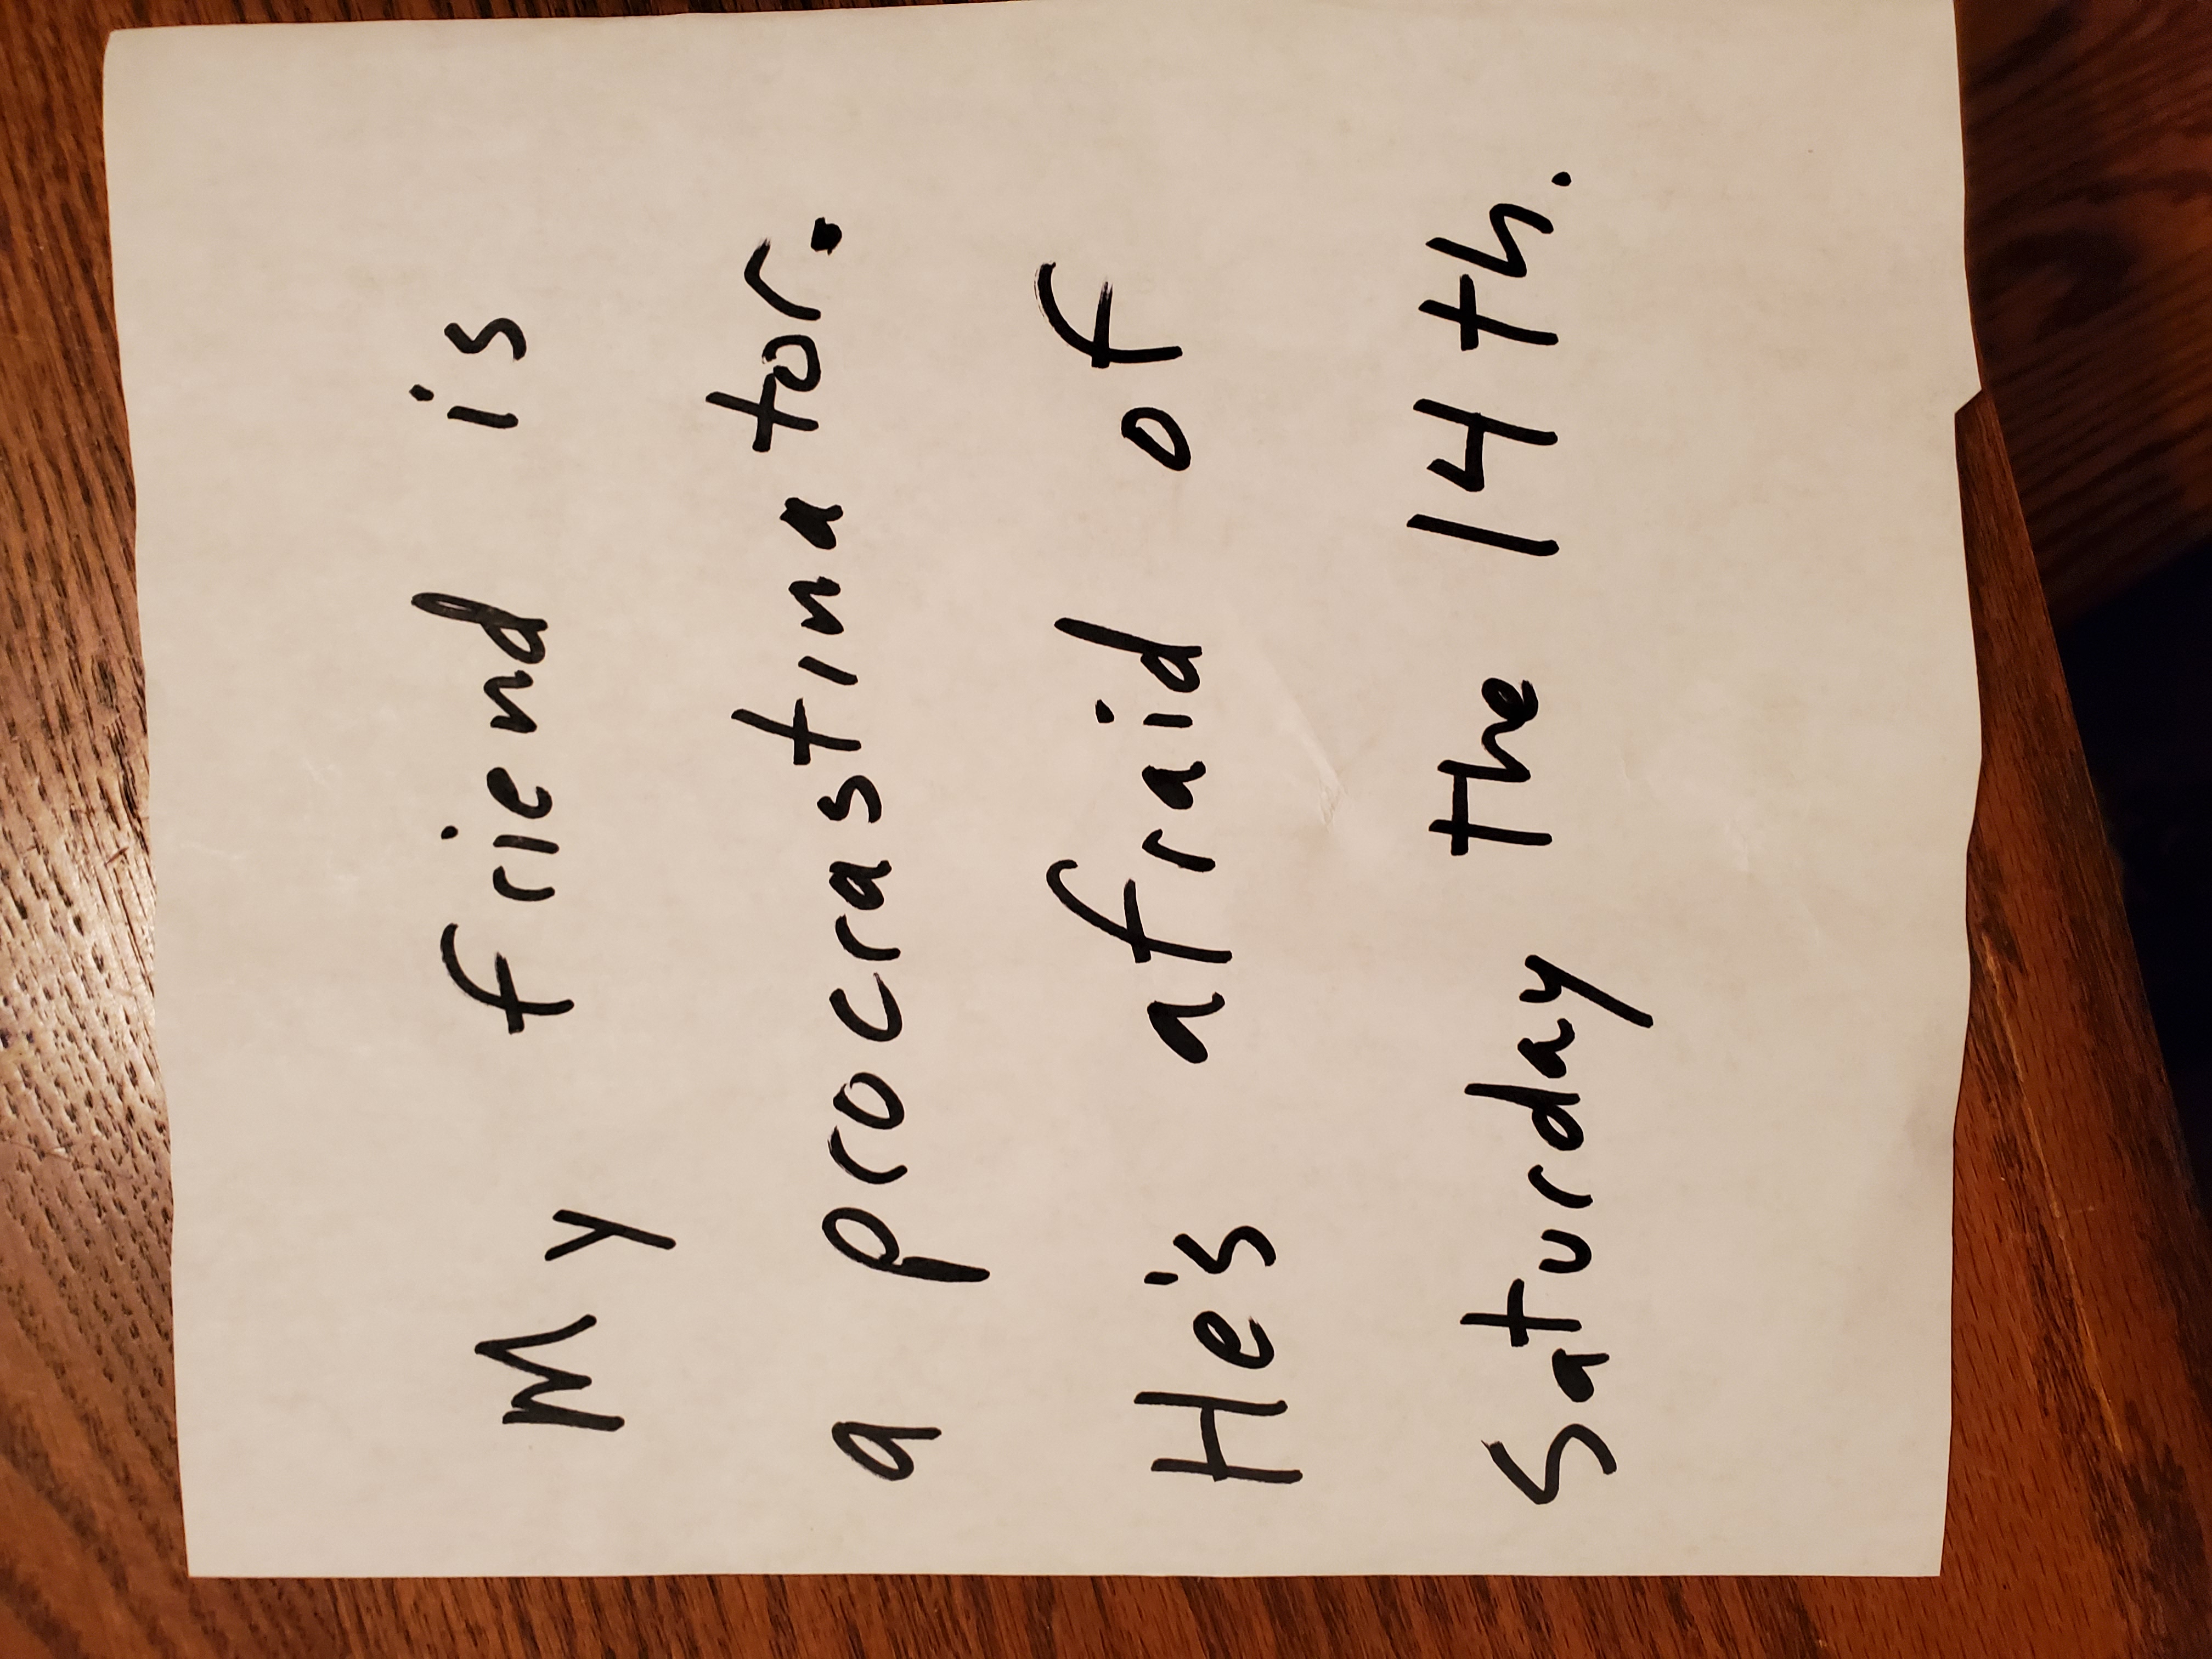 My friend is
a procrastinator.
He's afraid of
Saturday the 14th.